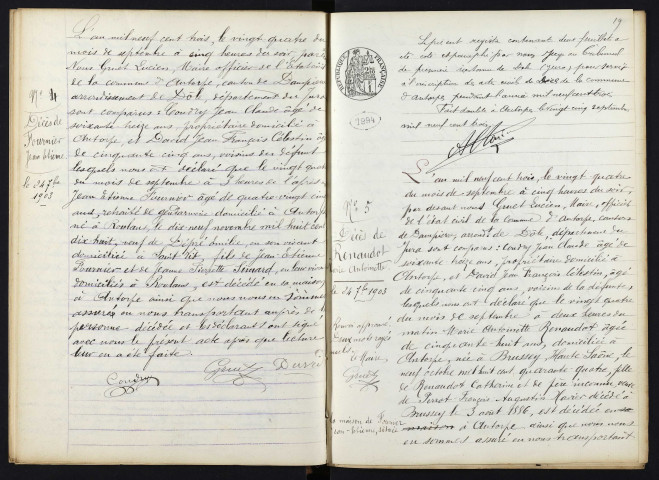 L'an mil neuf cent trois, le vingt quatre du
mois de septembre à cinq heures du soir, par devant
Nous Guet Lucien, Maire officier de l'Etat civil
de la commune d'Autorpe, canton de Dampierre
arrondissement de Dôle, département du Jura
sont comparus: Coudry Jean Claude âgé de
soixante treize ans, propriétaire domicilié à
Autorpe, et David Jean François Célestin âgé
de cinquante cinq ans, voisins du défunt
lesquels nous ont déclaré que le vingt quatre
du mois de septembre à heures de l'après
Jean Etienne Fournier âgé de quatre vingt cinq
ans, retraité de gendarmerie domicilié à Autorpe
né à Roulans, le dix neuf novembre mil huit cent
dix huit, veuf de en son vivant
domiciliée à Saint Vit, fils de Jean Etienne
Fournier et de Jeanne Pierrette
domiciliés à Roulans, est décédé en sa maison
à Autorpe ainsi que nous nous en sommes
assurés en nous transportant auprès de la
personne décédée et les déclarants ont signé
avec nous le présent acte après que lecture
leur en a été faite.
Coudry Guet David
N° 4
Décès de
Fournier
Jean Etienne
le 24 7bre
1903
19
REPUBLIQUE FRANÇAISE
1894
Le présent registre contenant deux feuillets a
été coté et paraphé par nous Juge au Tribunal
de première instance de Dole (Jura) pour servir
à l'inscription des actes de la commune
d'Autorpe, pendant l'année mil neuf cent trois.
Fait double à Autorpe le vingt cinq septembre
mil neuf cent trois.
N° 5
Décès de
Renaudot
Marie Antoinette
le 24 7bre 1903
L'an mil neuf cent trois, le vingt quatre
du mois de septembre à cinq heures du soir,
par devant nous Guet Lucien, Maire, officier
de l'état civil de la Commune d'Autorpe, canton
de Dampierre, arrondt de Dôle, département du
Jura sont comparus: Coudry Jean Claude âgé de
soixante treize ans, propriétaire domicilié à
Autorpe, et David Jean François Célestin, âgé
de cinquante cinq ans, voisins de la défunte,
lesquels nous ont déclaré que le vingt quatre
du mois de septembre à deux heures du
matin Marie Antoinette Renaudot âgée
de cinquante huit ans, domiciliée à
Autorpe, née à Brussey Haute Saône, le
neuf octobre mil huit cent quarante quatre, fille
de Renaudot Catherine et de père inconnu, veuve
de Perrot François Augustin Xavier décédé à
Brussey le 3 août 1886, est décédée en sa
maison à Autorpe ainsi que nous nous
en sommes assuré en nous transportant
Renvoi approuvé
Deux mots rayés
nuls
Le Maire
Guet
la maison de Fournier
Jean Etienne, située